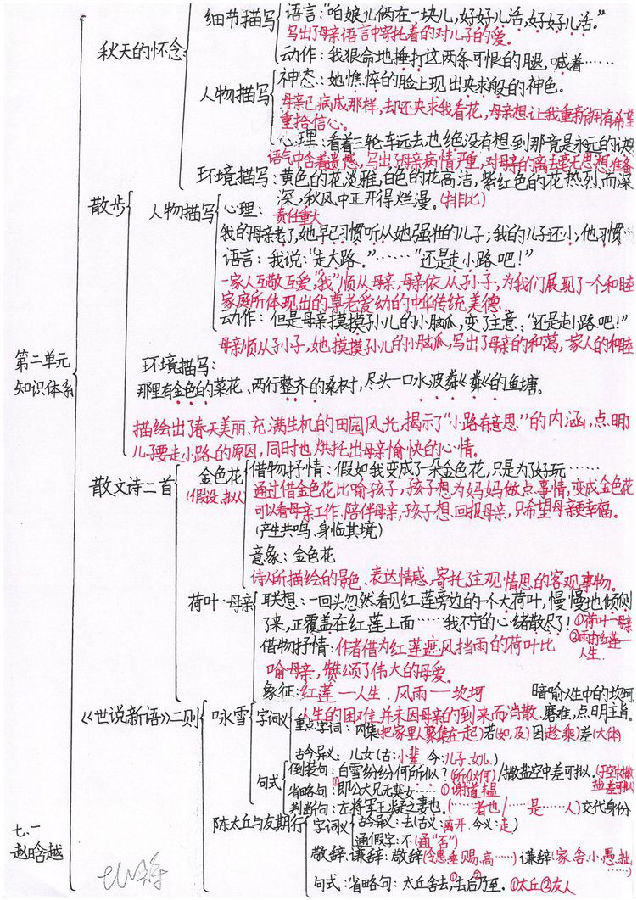 细节描写 语言："咱娘儿俩在一块儿，好好儿活，好好儿活。"
写出了母亲语言中寄托着的对儿子的爱。
秋天的怀念
动作：我狠命地捶打这两条可恨的腿，喊着……
人物描写 神态：她憔悴的脸上现出央求般的神色。
母亲已病成那样，却还央求我看花，母亲想让我重新拥有希望
重拾信心。
心理：看着三轮车远去也绝没有想到那竟是永远的诀
语气中含着遗憾，写出了母亲病情严重，对母亲的离去毫无思想准备
环境描写：黄色的花淡雅，白色的花高洁，紫红色的花热烈而深
深，秋风中正开得烂漫。（排比）
散步 人物描写 心理：责任重大
我的母亲老了，她早已习惯听从她强壮的儿子；我的儿子还小，他习惯
语言：我说："走大路。"……"还是走小路吧！"
一家人互敬互爱，"我"顺从母亲，母亲依从孙子，为我们展现了一个和睦
家庭所体现出的尊老爱幼的中华传统美德
动作：但是母亲摸摸孙儿的小脑瓜，变了主意："还是走小路吧！"
母亲顺从孙子，她摸摸孙儿的小脑瓜，写出了母亲的和蔼，家人的和睦
第二单元
知识体系
环境描写：
那里有金色的菜花、两行整齐的桑树，尽头一口水波粼粼的鱼塘。
描绘出了春天美丽、充满生机的田园风光，揭示了"小路有意思"的内涵，点明
儿子要走小路的原因，同时也烘托出母亲愉快的心情。
散文诗二首 金色花（假设，拟人） 借物抒情：假如我变成了一朵金色花，只是为了好玩……
通过借金色花比喻孩子，孩子想为妈妈做点事情，变成金色花
可以看母亲工作，陪伴母亲，孩子想回报母亲，只希望母亲幸福。
（产生共鸣，身临其境）
意象：金色花
诗人所描绘的景色、表达情感，寄托了主观情思的客观事物。
荷叶·母亲 联想：一回头忽然看见红莲旁边的一个大荷叶，慢慢地倾侧
了来，正覆盖在红莲上面……我不宁的心绪散尽了！ ①荷叶—母亲
②雨打红莲—人生
借物抒情：作者借为红莲遮风挡雨的荷叶比
喻母亲，赞颂了伟大的母爱。
象征：红莲—人生 风雨—坎坷 暗喻人生中的坎坷
人生的困难并未因母亲的到来而消散 磨难，点明主旨。
《世说新语》二则 咏雪 字词义 重点字词：内集（把家里人聚集在一起）若（如，及）因（趁，乘）差（大体）
古今异义：儿女（古：小辈 今：儿子、女儿）
句式 倒装句：白雪纷纷何所似？（所似何）/撒盐空中差可拟。（于空中撒盐差可拟）
省略句：即公大兄无奕女……①谢道韫
判断句：左将军王凝之妻也。（……者也/……是……人）交代身份
陈太丘与友期行 字词义 古今异义：去（古义：离开，今义：走）
通假字：不（通"否"）
七、一
赵晗越
敬辞、谦辞：敬辞（令、惠、垂、赐、高……） 谦辞：家、舍、小、愚、拙……
句式：省略句：太丘舍去，去后乃至。①太丘②友人